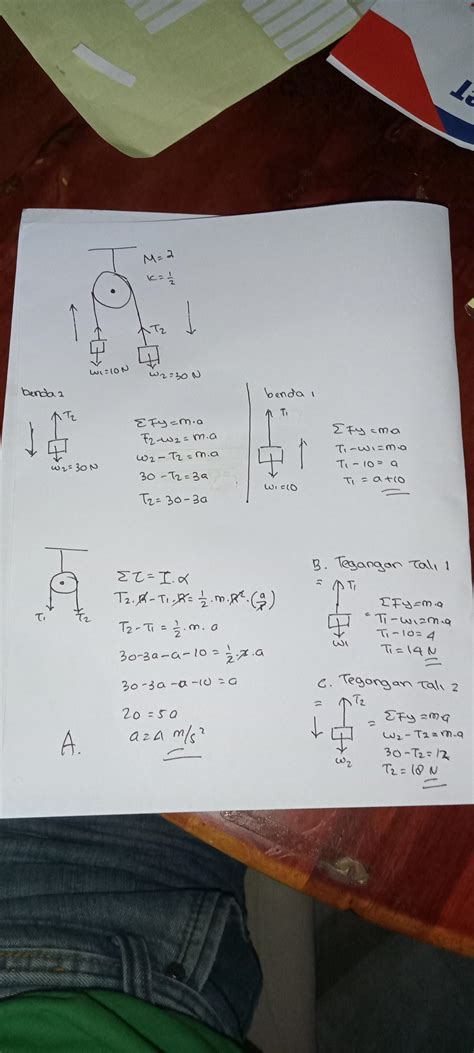 M=2
K=1/2
T2
W1=10N
W2=30N
benda 2
T2
W2=30N
ΣFy=m.a
F2-W2=m.a
W2-T2=m.a
30-T2=3a
T2=30-3a
benda 1
T1
W1=10
ΣFy=ma
T1-W1=m.a
T1-10=a
T1=a+10
T1
T2
Στ=I.α
T2.R-T1.R=1/2.m.R².(a/R)
T2-T1=1/2.m.a
30-3a-a-10=1/2.2.a
30-3a-a-10=a
20=5a
A.
a=4 m/s²
B. Tegangan Tali 1
=
T1
W1
ΣFy=ma
=T1-W1=m.a
T1-10=4
T1=14 N
C. Tegangan Tali 2
=
T2
W2
=ΣFy=ma
W2-T2=m.a
30-T2=12
T2=18 N